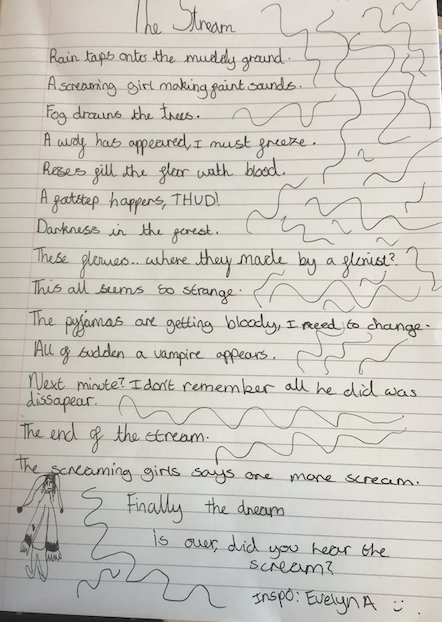 The Stream
Rain taps onto the muddy ground.
A screaming girl making faint sounds.
Fog drowns the trees.
A lady has appeared, I must freeze.
Roses fill the floor with blood.
A footstep happens, THUD!
Darkness in the forest.
These flowers.. where they made by a florist?
This all seems so strange.
The pyjamas are getting bloody, I need to change.
All of sudden a vampire appears.
Next minute? I don't remember all he did was
dissapear.
The end of the stream.
The screaming girls says one more scream.
Finally the dream
is over, did you hear the
scream?
Inspo: Evelyn A :)